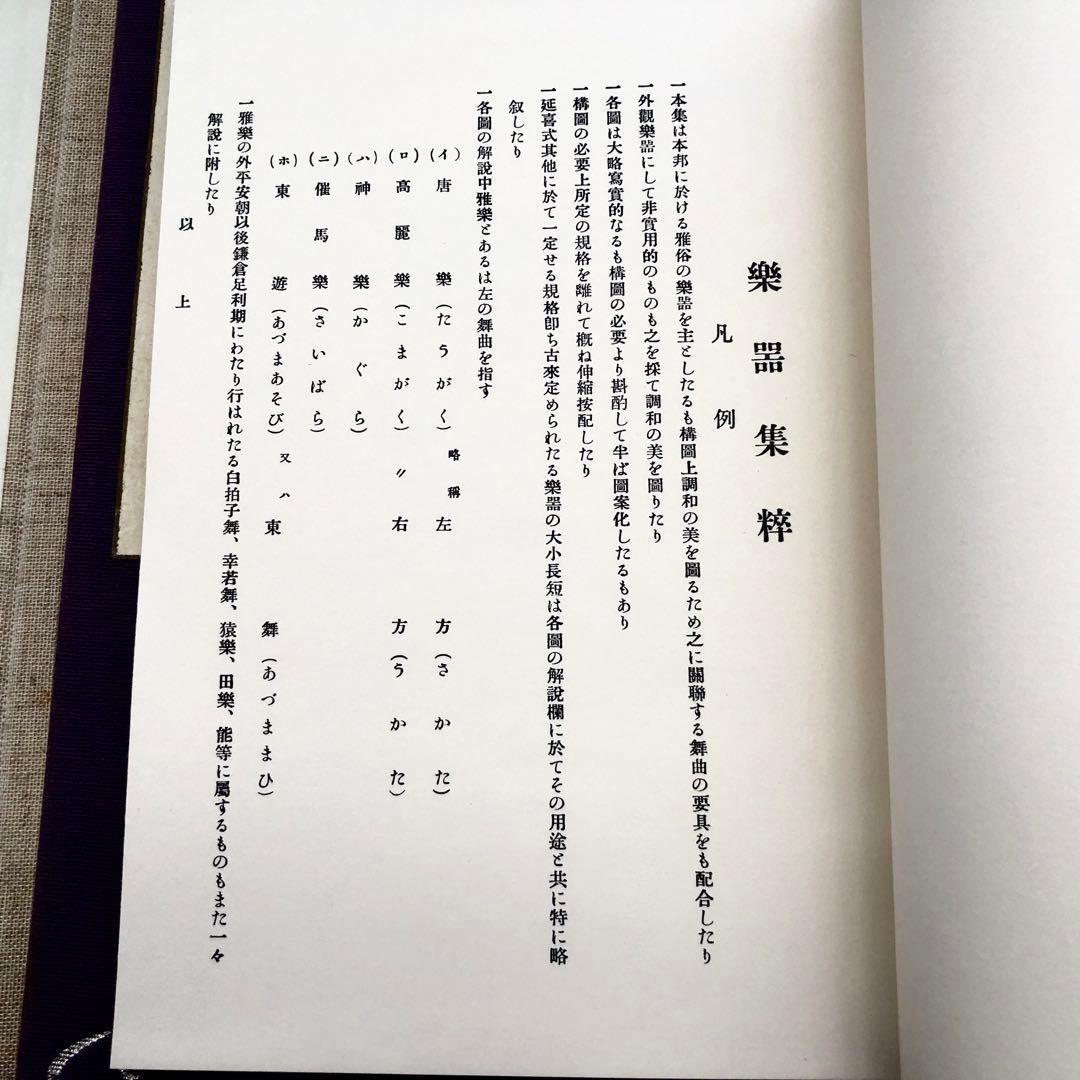 樂噐集粹
凡例
一本集は本邦に於ける雅俗の樂噐を主としたるも構圖上調和の美を圖るため之に關聯する舞曲の要具をも配合したり
一外觀樂噐にして非實用的のものも之を採て調和の美を圖りたり
一各圖は大略寫實的なるも構圖の必要より斟酌して半ば圖案化したるもあり
一構圖の必要上所定の規格を離れて概ね伸縮按配したり
一延喜式其他に於て一定せる規格卽ち古來定められたる樂器の大小長短は各圖の解說欄に於てその用途と共に特に略
叙したり
一各圖の解說中雅樂とあるは左の舞曲を指す
(イ)唐樂(たうがく)略稱左方(さかた)
(ロ)高麗樂(こまがく)〃右方(うかた)
(ハ)神樂(かぐら)
(ニ)催馬樂(さいばら)
(ホ)東遊(あづまあそび)又ハ東舞(あづままひ)
一雅樂の外平安朝以後鎌倉足利期にわたり行はれたる白拍子舞、幸若舞、猿樂、田樂、能等に屬するものもまた一々
解說に附したり
以上